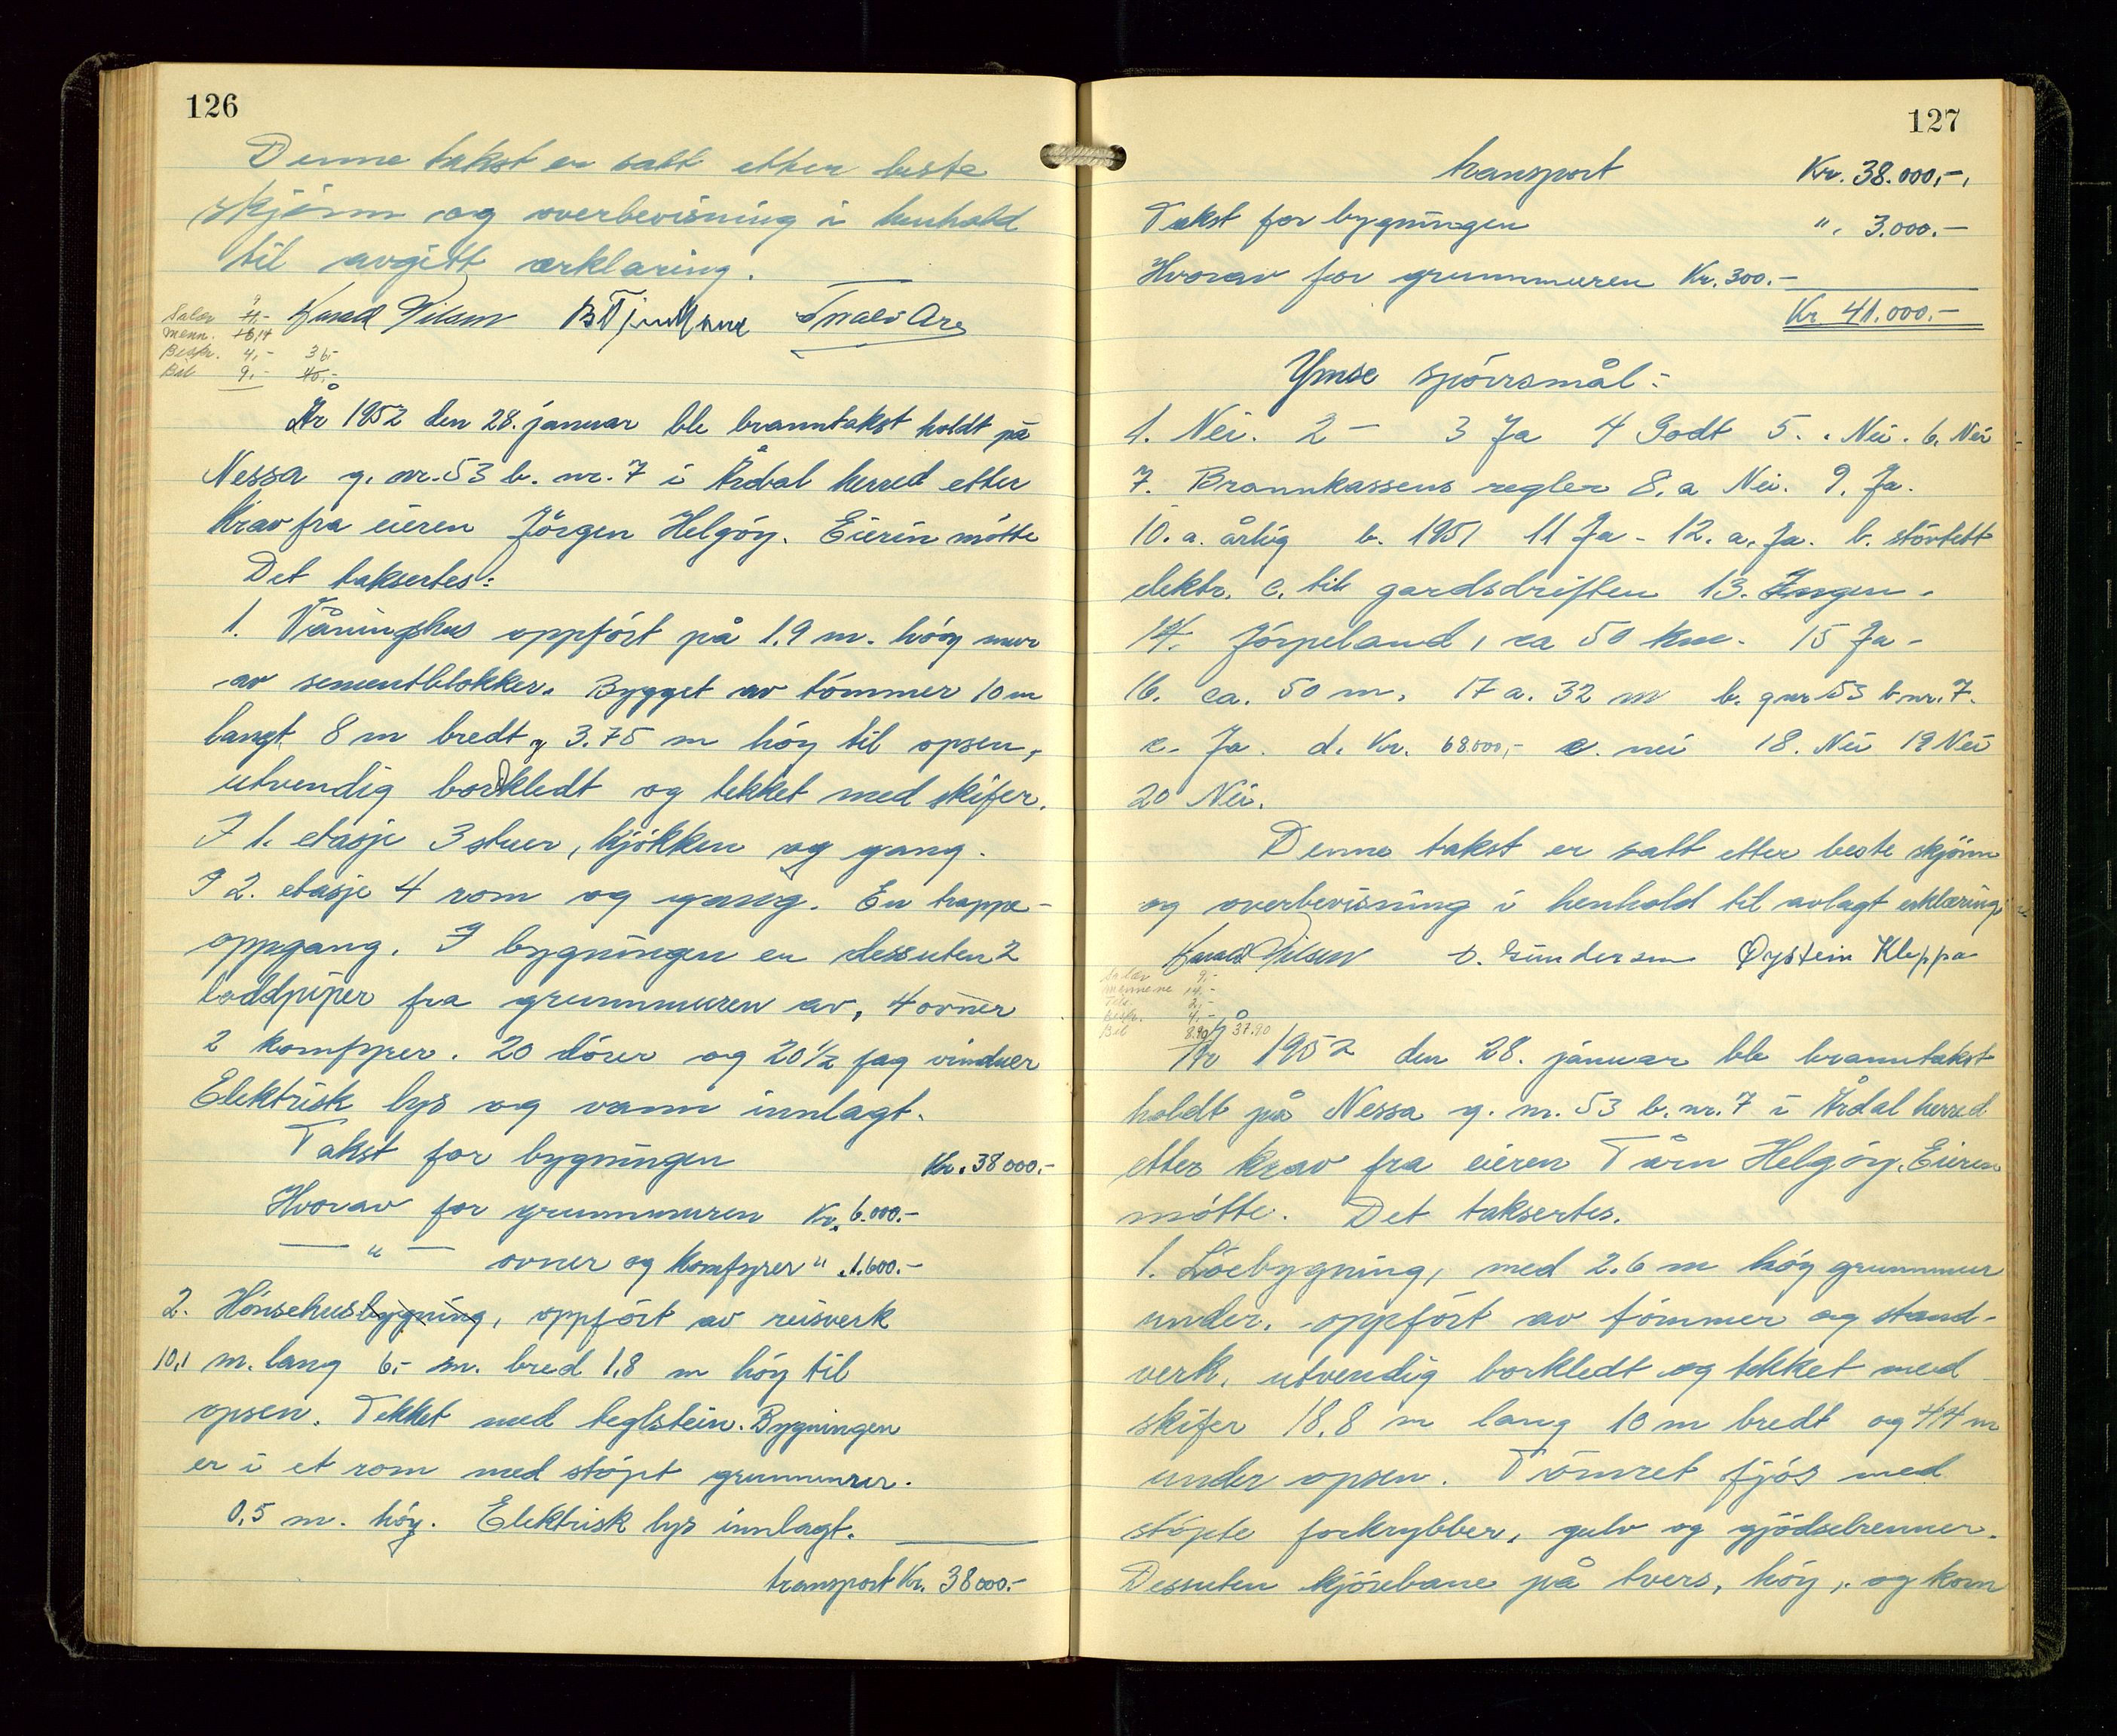 126
Denne takst er satt etter beste
skjönn og overbevisning i henhold
til avgitt erklæring.
Salær 9,-
menn. 14
Beskr. 4,- 36,-
Bil 9,- 40,-
År 1952 den 28. januar ble branntakst holdt på
Nessa g. nr. 53 b. nr. 7 i Årdal herred etter
krav fra eieren Jörgen Helgöy. Eieren mötte
Det taksertes:
1. Våningshus oppfört på 1.9 m. höy mur
av sementblokker. Bygget av tömmer 10 m
langt 8 m bredt og 3.75 m höy til opsen,
utvendig bordkledt og tekket med skifer.
I 1. etasje 3 stuer, kjökken og gang.
I 2. etasje 4 rom og gang. En trappe-
oppgang. I bygningen er dessuten 2
loddpiper fra grunnmuren av, 4 ovner
2 komfyrer. 20 dörer og 20 1/2 fag vinduer
Elektrisk lys og vann innlagt.
Takst for bygningen Kr. 38000.-
Hvorav for grunnmuren Kr. 6.000.-
— " — ovner og komfyrer " 1.600.-
2. Hönsehusbygning, oppfört av reisverk
10,1 m. lang 6,- m. bred 1,8 m höy til
opsen. Tekket med teglstein. Bygningen
er i et rom med stöpt grunnmur.
0,5 m. höy. Elektrisk lys innlagt.
transport Kr. 38000.-
127
transport Kr. 38.000,-
Takst for bygningen " 3.000.-
Hvorav for grunnmuren Kr. 300.-
Kr 41.000.-
Ymse spörsmål:
1. Nei. 2 - 3 Ja 4 Godt 5. Nei. 6. Nei
7. Brannkassens regler 8. a Nei. 9. Ja.
10. a. årlig b. 1951 11 Ja - 12. a. Ja. b. stövtett
elektr. c. til gardsdriften 13. Ingen.
14. Jörpeland, ca 50 km. 15 Ja -
16. ca. 50 m. 17 a. 32 m b. gnr 53 bnr. 7.
c. Ja. d. Kr. 68000,- e. nei 18. Nei 19 Nei
20 Nei.
Denne takst er satt etter beste skjönn
og overbevisning i henhold til avlagt erklæring.
Gundersen Øystein Kleppa
Salær 9,-
mennene 14,-
2,-
Beskr. 4,-
Bil 8.90 37.90
År 1952 den 28. januar ble branntakst
holdt på Nessa g. nr. 53 b. nr. 7 i Årdal herred
etter krav fra eieren Tårn Helgöy. Eieren
mötte. Det taksertes.
1. Löebygning, med 2.6 m höy grunnmur
under. oppfört av tömmer og stand-
verk, utvendig borkledt og tekket med
skifer 18,8 m lang 10 m bredt og 4,4 m
under opsen. Tömret fjös med
stöpte forkrybber, gulv og gjödselrenner.
Dessuten kjörebane på tvers, höy, og korn